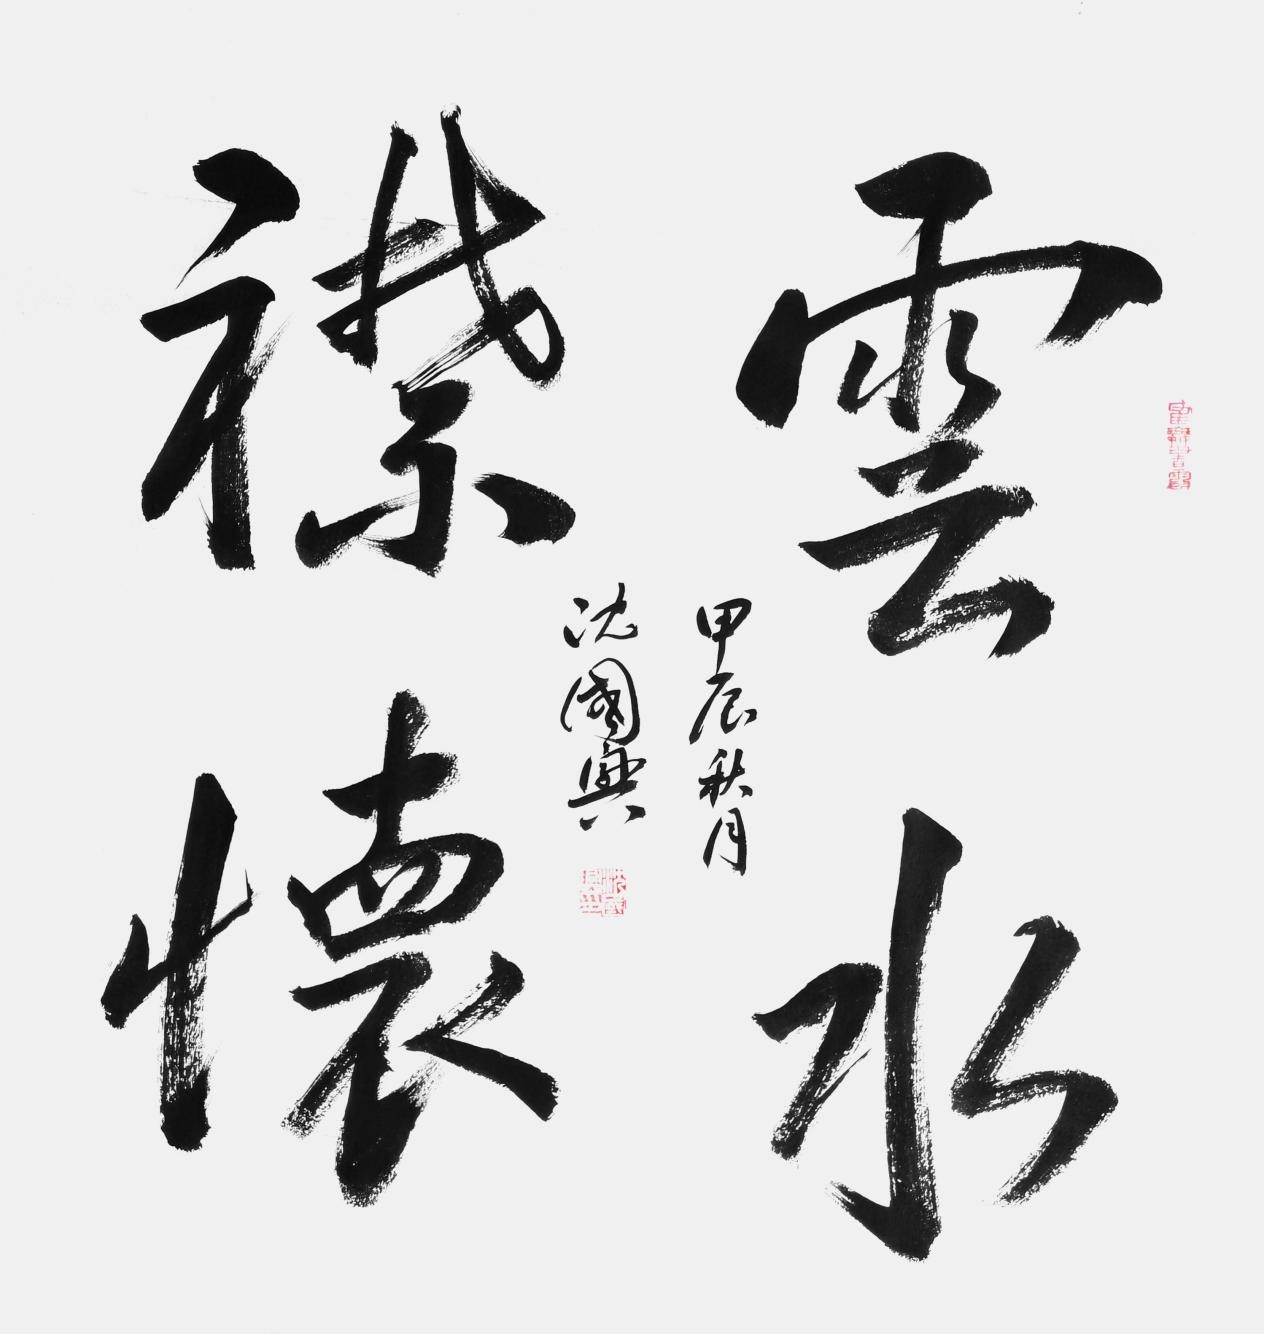 雲水
襟懷
甲辰秋月
沈國興